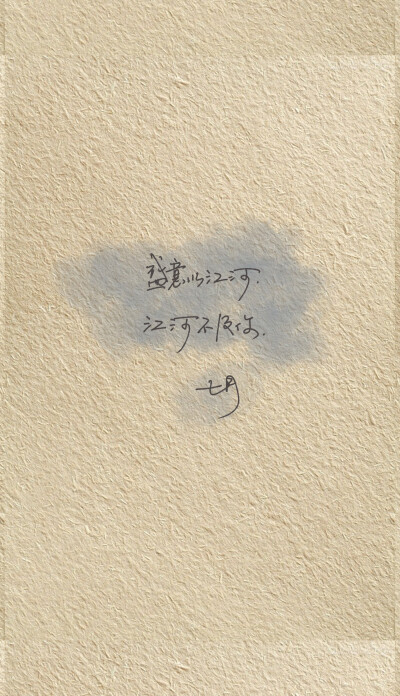 盛意以江河.
江河不及你.
七月